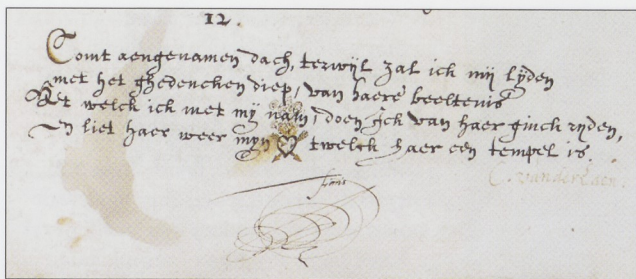 12.
Comt aengenamen dach, terwijl zal ick mij lijden
met het ghedencken diep, van haere beeltenis
Het welck ick met mij nam, doen Ick van haer ginck rijden,
En liet haer weer mijn twelck haer een tempel is.
finis
C. vander Laen.